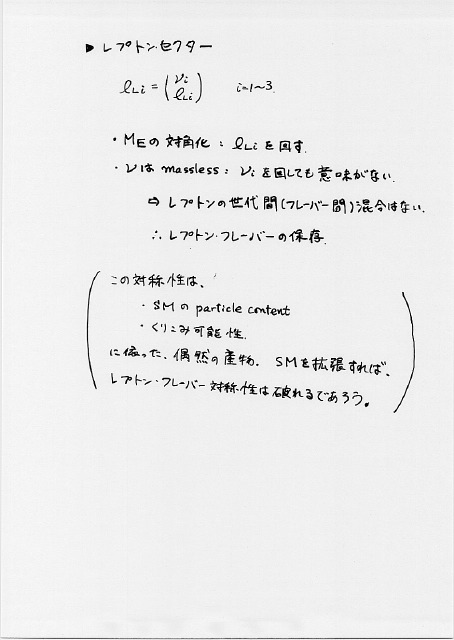 ▶ レプトン・セクター
ℓLi = (νi ℓLi) i=1~3
・MEの対角化 : ℓLiを回す.
・νはmassless : νiを回しても意味がない.
⇨ レプトンの世代間(フレーバー間)混合はない.
∴ レプトン・フレーバーの保存.
この対称性は、
・SMのparticle content
・くりこみ可能性.
に依った、偶然の産物. SMを拡張すれば、
レプトン・フレーバー対称性は破れるであろう。